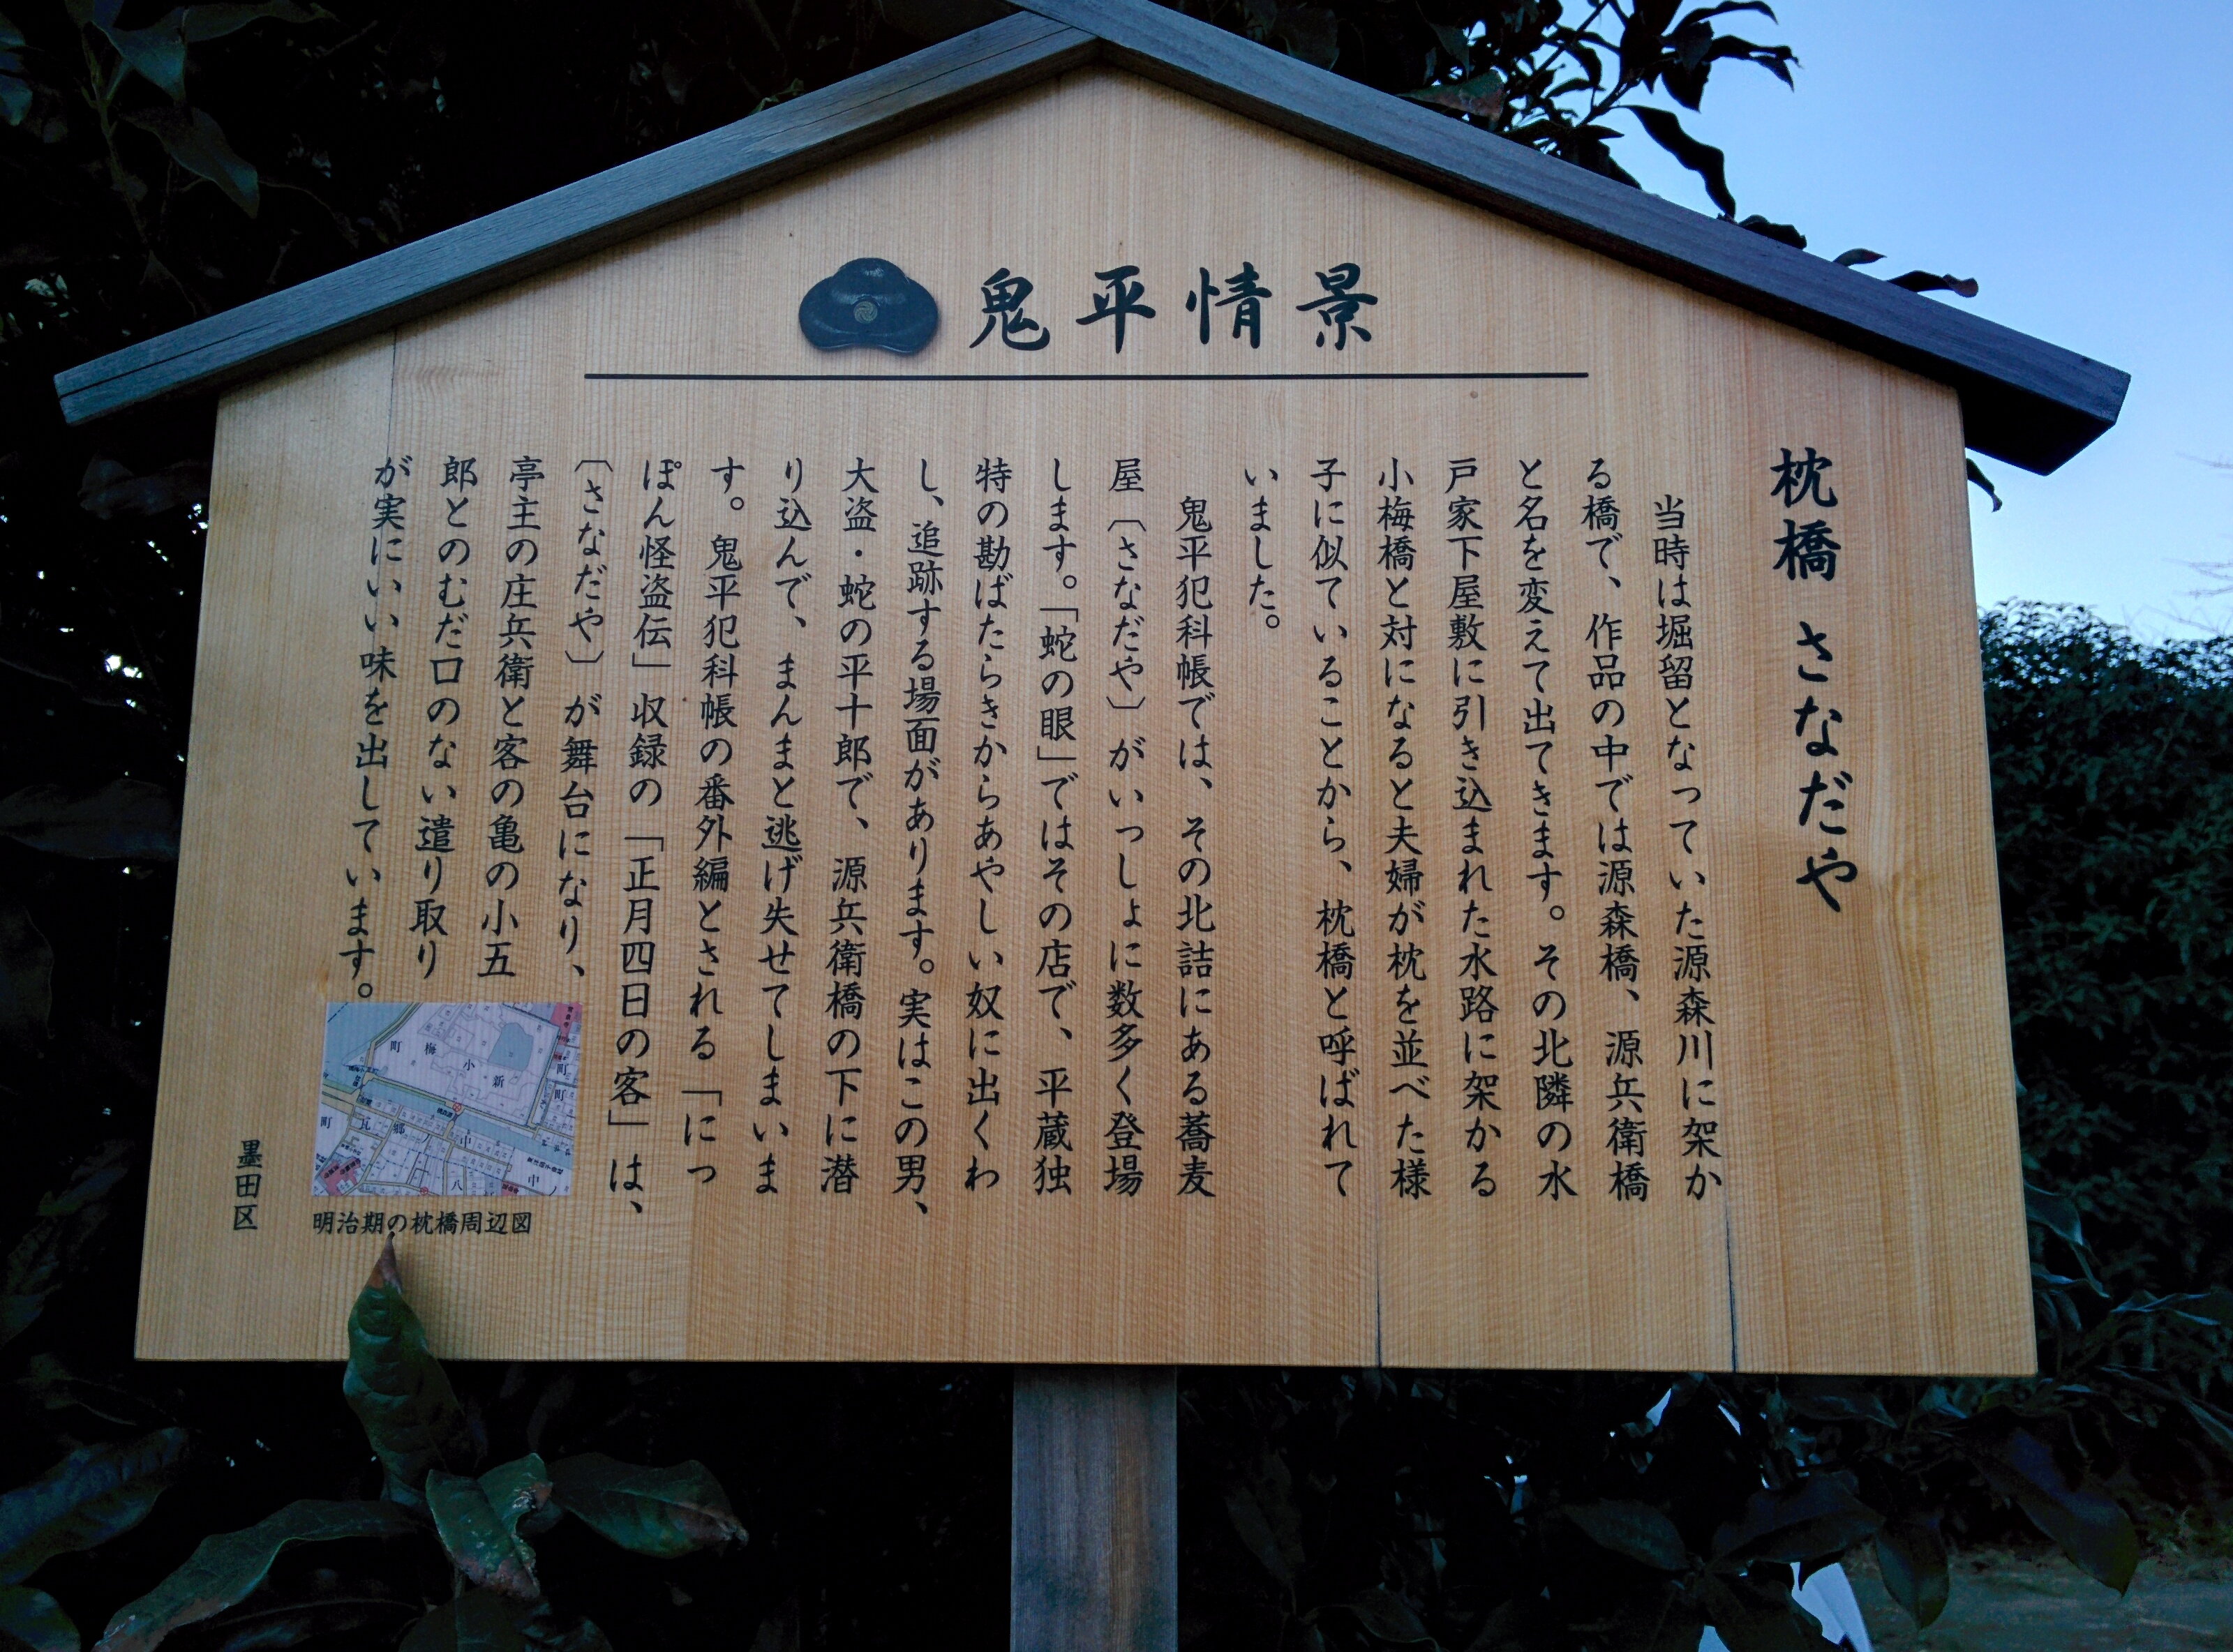 鬼平情景
枕橋 さなだや
当時は堀留となっていた源森川に架か
る橋で、作品の中では源森橋、源兵衛橋
と名を変えて出てきます。その北隣の水
戸家下屋敷に引き込まれた水路に架かる
小梅橋と対になると夫婦が枕を並べた様
子に似ていることから、枕橋と呼ばれて
いました。
鬼平犯科帳では、その北詰にある蕎麦
屋〔さなだや〕がいっしょに数多く登場
します。「蛇の眼」ではその店で、平蔵独
特の勘ばたらきからあやしい奴に出くわ
し、追跡する場面があります。実はこの男、
大盗・蛇の平十郎で、源兵衛橋の下に潜
り込んで、まんまと逃げ失せてしまいま
す。鬼平犯科帳の番外編とされる「にっ
ぽん怪盗伝」収録の「正月四日の客」は、
〔さなだや〕が舞台になり、
亭主の庄兵衛と客の亀の小五
郎とのむだ口のない遣り取り
が実にいい味を出しています。
町梅小新
町瓦郷ノ中
明治期の枕橋周辺図
墨田区